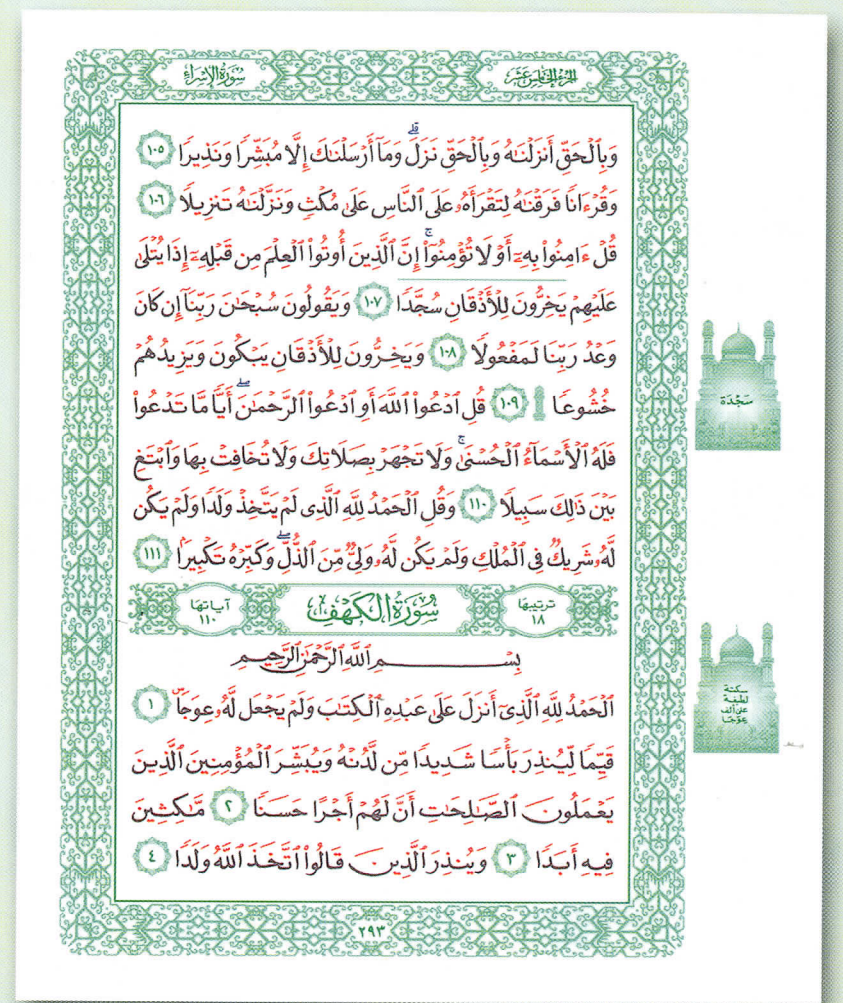 سُورَةُ الإِسْرَاءِ
الجُزْءُ الخَامِسَ عَشَرَ
وَبِٱلْحَقِّ أَنزَلْنَـٰهُ وَبِٱلْحَقِّ نَزَلَ ۗ وَمَآ أَرْسَلْنَـٰكَ إِلَّا مُبَشِّرًا وَنَذِيرًا ١٠٥
وَقُرْءَانًا فَرَقْنَـٰهُ لِتَقْرَأَهُۥ عَلَى ٱلنَّاسِ عَلَىٰ مُكْثٍ وَنَزَّلْنَـٰهُ تَنزِيلًا ١٠٦
قُلْ ءَامِنُوا۟ بِهِۦٓ أَوْ لَا تُؤْمِنُوٓا۟ ۚ إِنَّ ٱلَّذِينَ أُوتُوا۟ ٱلْعِلْمَ مِن قَبْلِهِۦٓ إِذَا يُتْلَىٰ
عَلَيْهِمْ يَخِرُّونَ لِلْأَذْقَانِ سُجَّدًا ١٠٧ وَيَقُولُونَ سُبْحَـٰنَ رَبِّنَآ إِن كَانَ
وَعْدُ رَبِّنَا لَمَفْعُولًا ١٠٨ وَيَخِرُّونَ لِلْأَذْقَانِ يَبْكُونَ وَيَزِيدُهُمْ
خُشُوعًا ١٠٩ قُلِ ٱدْعُوا۟ ٱللَّهَ أَوِ ٱدْعُوا۟ ٱلرَّحْمَـٰنَ ۖ أَيًّا مَّا تَدْعُوا۟
فَلَهُ ٱلْأَسْمَآءُ ٱلْحُسْنَىٰ ۚ وَلَا تَجْهَرْ بِصَلَاتِكَ وَلَا تُخَافِتْ بِهَا وَٱبْتَغِ
بَيْنَ ذَٰلِكَ سَبِيلًا ١١٠ وَقُلِ ٱلْحَمْدُ لِلَّهِ ٱلَّذِى لَمْ يَتَّخِذْ وَلَدًا وَلَمْ يَكُن
لَّهُۥ شَرِيكٌ فِى ٱلْمُلْكِ وَلَمْ يَكُن لَّهُۥ وَلِىٌّ مِّنَ ٱلذُّلِّ ۖ وَكَبِّرْهُ تَكْبِيرًۢا ١١١
سَجْدَة
ترتيبها ١٨
سُورَةُ الكَهْفِ
آياتها ١١٠
بِسْمِ ٱللَّهِ ٱلرَّحْمَـٰنِ ٱلرَّحِيمِ
ٱلْحَمْدُ لِلَّهِ ٱلَّذِىٓ أَنزَلَ عَلَىٰ عَبْدِهِ ٱلْكِتَـٰبَ وَلَمْ يَجْعَل لَّهُۥ عِوَجَاۜ ١
قَيِّمًا لِّيُنذِرَ بَأْسًا شَدِيدًا مِّن لَّدُنْهُ وَيُبَشِّرَ ٱلْمُؤْمِنِينَ ٱلَّذِينَ
يَعْمَلُونَ ٱلصَّـٰلِحَـٰتِ أَنَّ لَهُمْ أَجْرًا حَسَنًا ٢ مَّـٰكِثِينَ
فِيهِ أَبَدًا ٣ وَيُنذِرَ ٱلَّذِينَ قَالُوا۟ ٱتَّخَذَ ٱللَّهُ وَلَدًا ٤
سكتة
لطيفة
على ألف
عوجا
٢٩٣